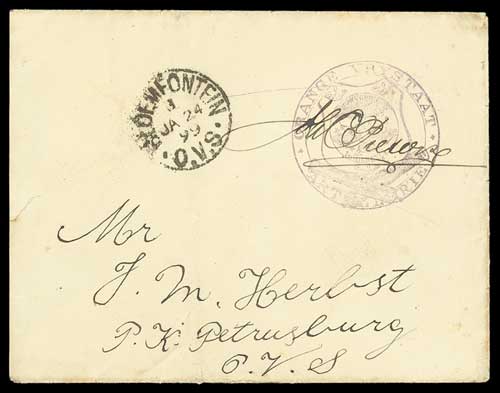 BLOEMFONTEIN
JA 24
99
O.V.S.
ORANGE VRYSTAAT
ARTILLERIE
Mr
J. M. Herbst
P. K. Petrusburg
O. V. S